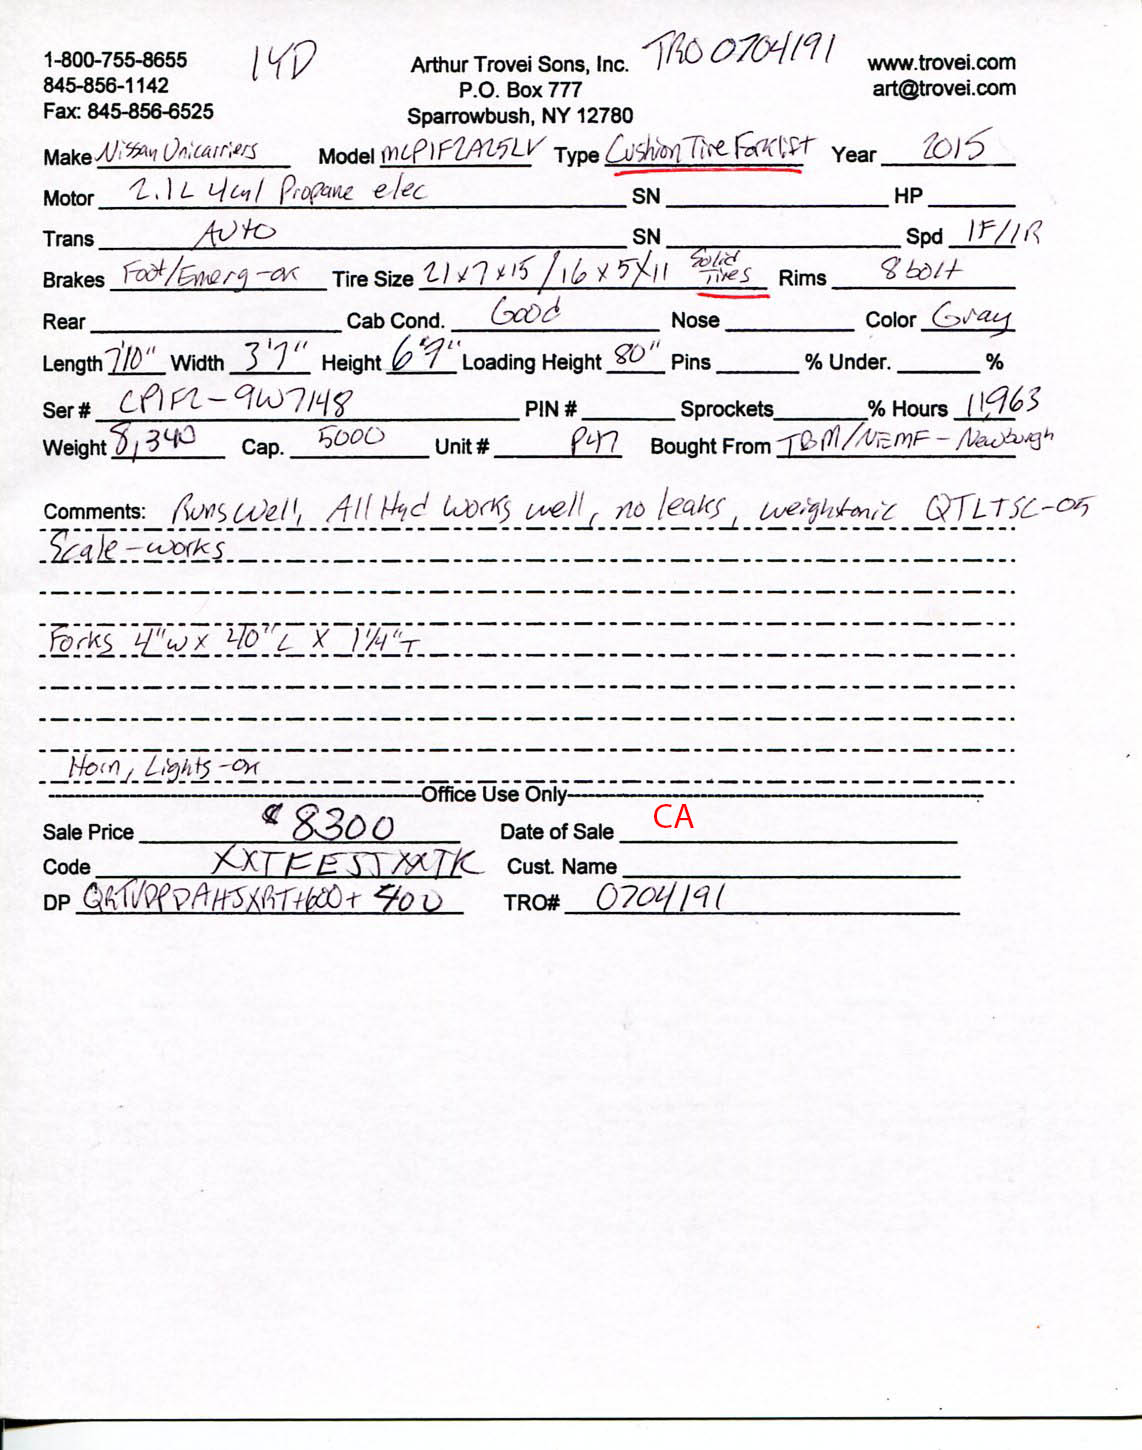 1-800-755-8655 14D Arthur Trovei Sons, Inc. TRO 0704191 www.trovei.com
845-856-1142 P.O. Box 777 art@trovei.com
Fax: 845-856-6525 Sparrowbush, NY 12780
Make Nissan Unicarriers Model MCP1F2A25LV Type Cushion Tire Forklift Year 2015
Motor 2.1L 4cyl Propane elec SN HP
Trans Auto SN Spd 1F/1R
Brakes Foot/Emerg-ok Tire Size 21x7x15/16x5x11 Solid Tires Rims 8 bolt
Rear Cab Cond. Good Nose Color Gray
Length 7'10" Width 3'7" Height 6'9" Loading Height 80" Pins % Under. %
Ser # CP1F2-9W7148 PIN # Sprockets % Hours 11,963
Weight 8,340 Cap. 5000 Unit # P47 Bought From TBM/NEMF-Newburgh
Comments: Runs well, All Hyd works well, no leaks, weightronic QTLTSC-05
Scale-works
Forks 4"W x 40"L x 1 1/4"T
Horn, Lights-ok
Office Use Only
Sale Price $8300 Date of Sale CA
Code XXTFESTXXTK Cust. Name
DP +600+400 TRO# 0704191